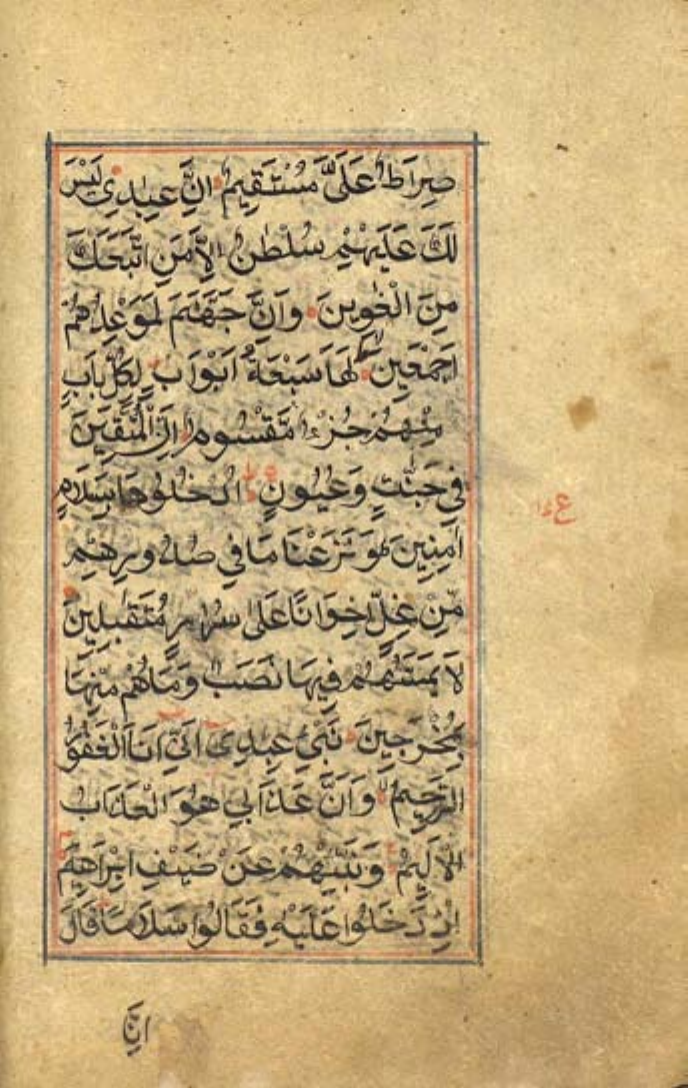 صِرَاطٌ عَلَيَّ مُسْتَقِيمٌ اِنَّ عِبَادِي لَيْسَ
لَكَ عَلَيْهِمْ سُلْطٰنٌ اِلَّا مَنِ اتَّبَعَكَ
مِنَ الْغٰوِينَ وَاِنَّ جَهَنَّمَ لَمَوْعِدُهُمْ
اَجْمَعِينَ لَهَا سَبْعَةُ اَبْوَابٍ لِكُلِّ بَابٍ
مِنْهُمْ جُزْءٌ مَقْسُومٌ اِنَّ الْمُتَّقِينَ
فِي جَنّٰتٍ وَعُيُونٍ اُدْخُلُوهَا بِسَلَامٍ
اٰمِنِينَ وَنَزَعْنَا مَا فِي صُدُورِهِمْ
مِنْ غِلٍّ اِخْوَانًا عَلٰى سُرُرٍ مُتَقٰبِلِينَ
لَا يَمَسُّهُمْ فِيهَا نَصَبٌ وَمَا هُمْ مِنْهَا
بِمُخْرَجِينَ نَبِّئْ عِبَادِي اَنِّي اَنَا الْغَفُورُ
الرَّحِيمُ وَاَنَّ عَذَابِي هُوَ الْعَذَابُ
الْاَلِيمُ وَنَبِّئْهُمْ عَنْ ضَيْفِ اِبْرٰاهِيمَ
اِذْ دَخَلُوا عَلَيْهِ فَقَالُوا سَلَامًا قَالَ
اِنَّا